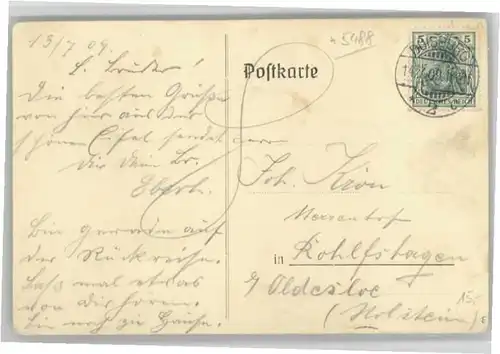 13/7 09.
L. Bruder!
Die besten Grüße
von hier aus der
schönen Eifel sendet gern
Dir Dein Br.
Eberh.
Bin gerade auf
der Rückreise.
Lass mal etwas
von Dir hören.
Bin noch zu Hause.
5988
Postkarte
5 5
DEUTSCHES REICH
Joh. Krön
in Rohlfshagen
b/ Oldesloe
(Holstein)
15,-